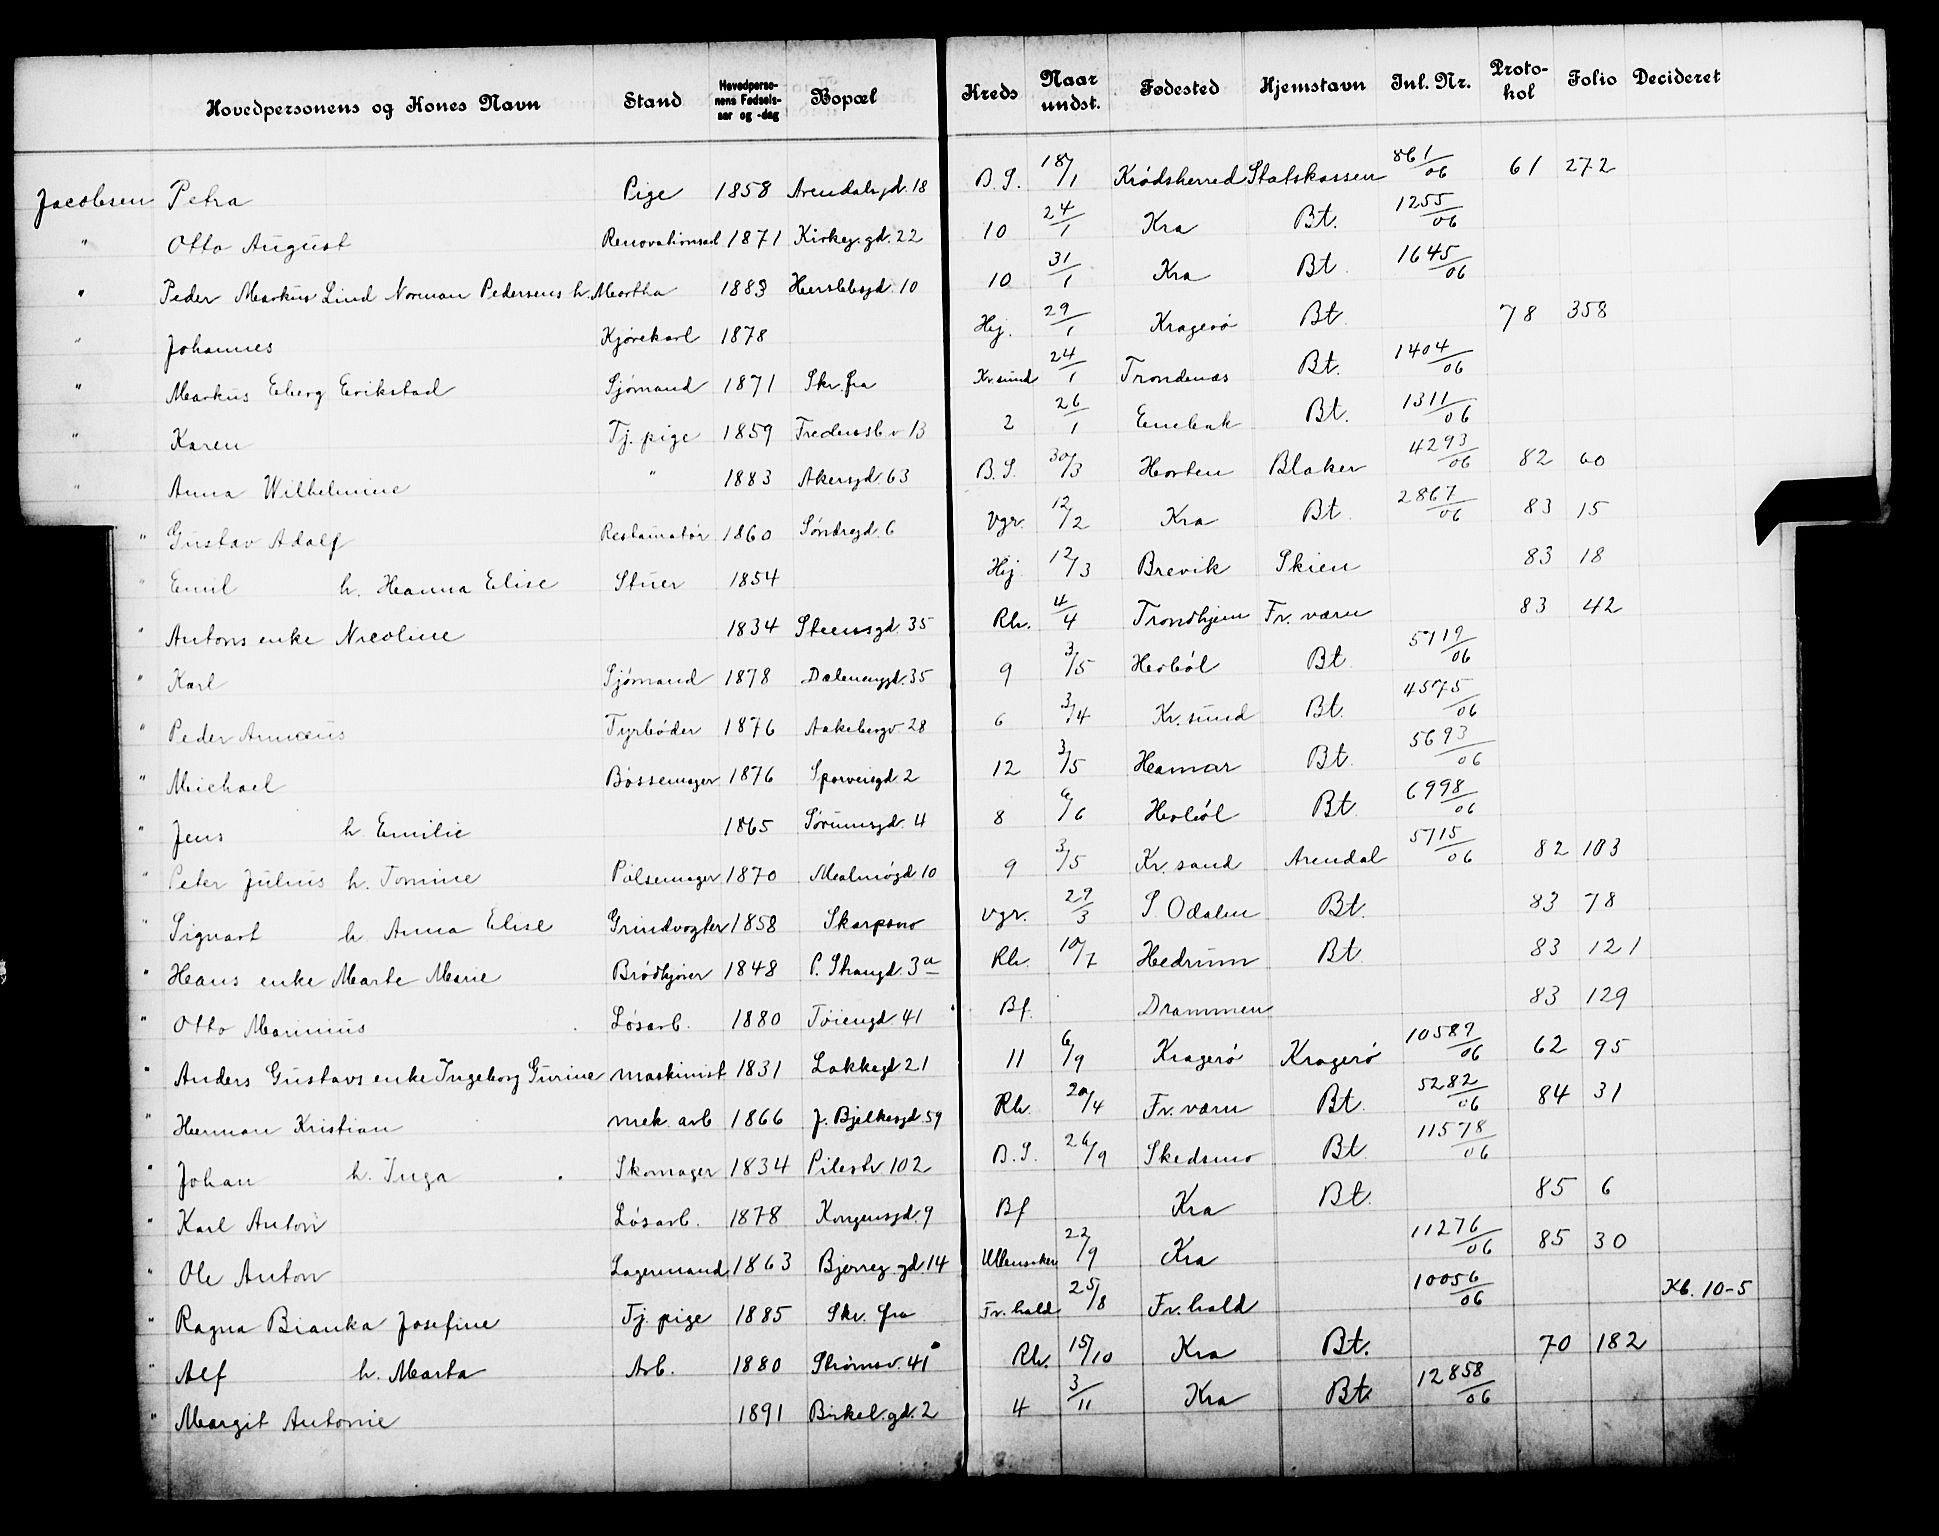 Hovedpersonens og Kones Navn Stand Hovedpersonens Fødselsaar og -dag Bopæl Kreds Naar undst. Fødested Hjemstavn Inl. Nr. Protokol Folio Decideret
Jacobsen Petra Pige 1858 Arendalsgd. 18 B.S. 18/1 Krødsherred Statskassen 861/06 61 272
" Otto August Renovationsarb 1871 Kirkeg. gd. 22 10 24/1 Kra Bt. 1255/06
" Peder Markus Lind Norman Pedersens h. Martha 1883 Herslebsgd. 10 10 31/1 Kra Bt. 1645/06
" Johannes Kjørekarl 1878 Hej. 29/1 Kragerø Bt. 78 358
" Markus Eberg Erikstad Sjømand 1871 Skr. fra Kr.sund 24/1 Trondenæs Bt. 1404/06
" Karen Tj. pige 1859 Fredensb. v 13 2 26/1 Enebak Bt. 1311/06
" Anna Wilhelmine " 1883 Akersgd. 63 B.S. 30/3 Horten Blaker 4293/06 82 60
" Gustav Adolf Restauratør 1860 Søndregd. 6 Vgr. 12/2 Kra Bt. 2867/06 83 15
" Emil h. Hanna Elise Stuer 1854 Hej. 12/3 Brevik Skien 83 18
" Antons enke Nicoline 1834 Steensgd. 35 Rh. 4/4 Trondhjem Fr. værn 83 42
" Karl Sjømand 1878 Dælenenggd. 35 9 3/5 Hobøl Bt. 5719/06
" Peder Annæus Fyrbøder 1876 Aakebergv. 28 6 3/4 Kr. sund Bt. 4575/06
" Michael Bøssemager 1876 Sporveisgd. 2 12 3/5 Hamar Bt. 5693/06
" Jens h. Emilie 1865 Sørumsgd. 4 8 6/6 Hobøl Bt. 6998/06
" Peter Julius h. Tomine Pølsemager 1870 Malmøgd 10 9 3/5 Kr. sand Arendal 5715/06 82 103
" Sigvart h. Anna Elise Grindvogter 1858 Skarpsno Vgr. 29/3 S. Odalen Bt. 83 78
" Hans enke Marte Marie Brødkjører 1848 P. Skaugd. 3a Rh. 10/7 Hedrum Bt. 83 121
" Otto Marinius Løsarb. 1880 Tøiengd. 41 Bf. Drammen 83 129
" Anders Gustavs enke Ingeborg Gurine maskinist 1831 Lakkegd 21 11 6/9 Kragerø Kragerø 10589/06 62 95
" Herman Kristian mek. arb 1866 J. Bjelkesgd. 59 Rh. 20/4 Fr. værn Bt. 5282/06 84 31
" Johan h. Inga Skomager 1834 Pilestr 102 B.S. 26/9 Skedsmo Bt. 11578/06
" Karl Anton Løsarb. 1878 Kongensgd. 9 Bf Kra Bt. 85 6
" Ole Anton Lagermand 1863 Bjerreg. gd. 14 Ullensaker 22/9 Kra 11276/06 85 30
" Ragna Bianka Josefine Tj. pige 1885 Skr. fra Fr. hald 25/8 Fr. hald 10056/06 Kb. 10-5
" Alf h. Marta Arb. 1880 Strømsv. 41 Rh. 15/10 Kra Bt. 70 182
" Margit Antonie 1891 Birkel. gd. 2 4 3/11 Kra Bt. 12858/06